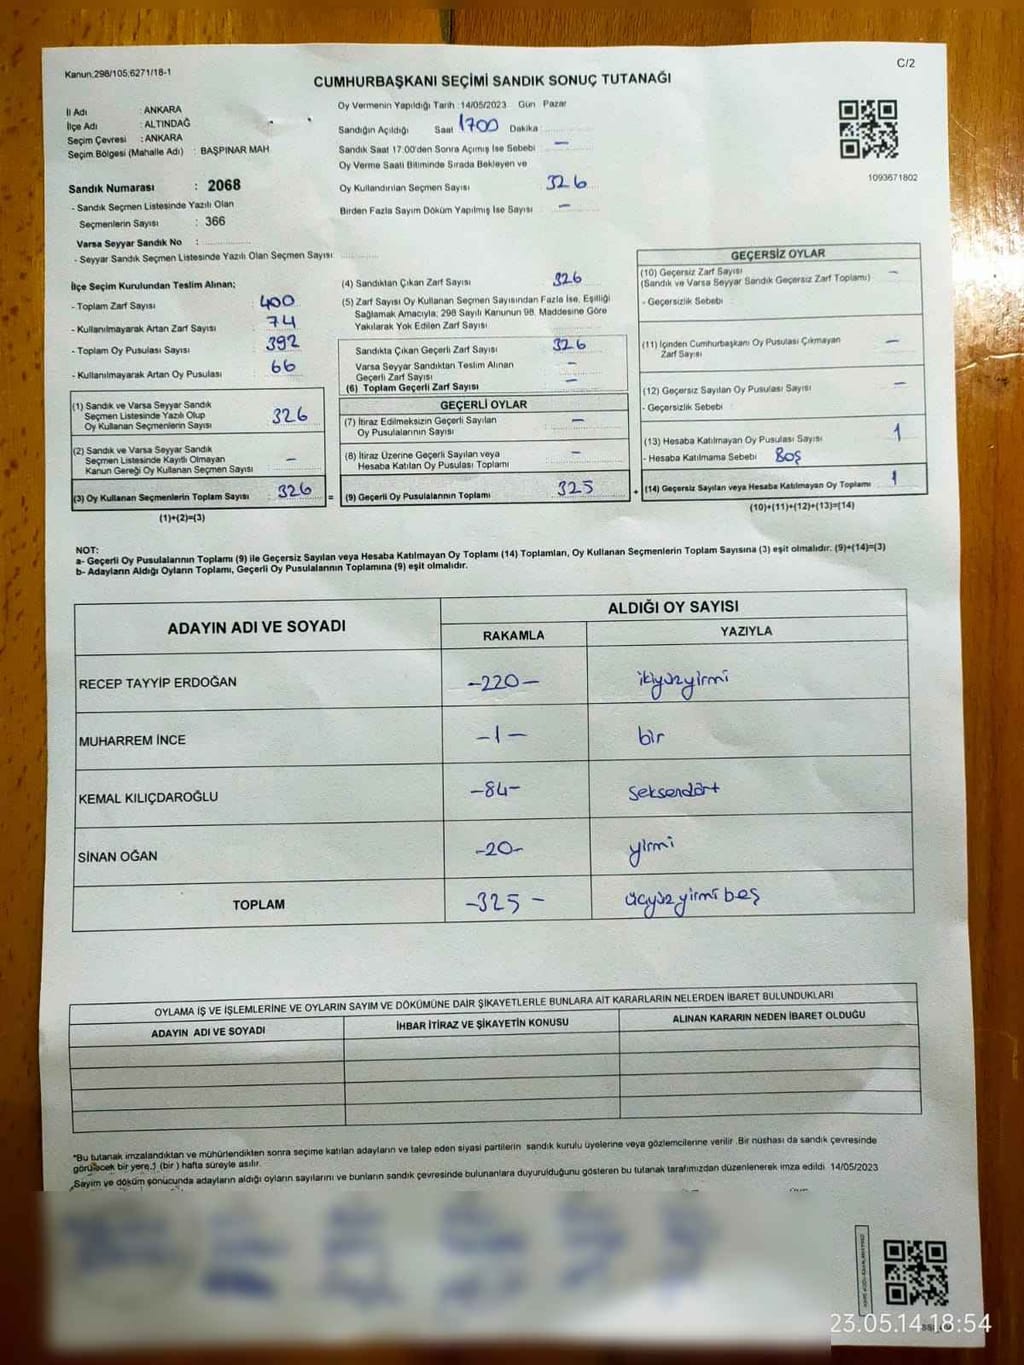 Kanun;298/105;6271/18-1
C/2
CUMHURBAŞKANI SEÇİMİ SANDIK SONUÇ TUTANAĞI
İl Adı : ANKARA
İlçe Adı : ALTINDAĞ
Seçim Çevresi : ANKARA
Seçim Bölgesi (Mahalle Adı) : BAŞPINAR MAH
Sandık Numarası : 2068
- Sandık Seçmen Listesinde Yazılı Olan
Seçmenlerin Sayısı : 366
Varsa Seyyar Sandık No :
- Seyyar Sandık Seçmen Listesinde Yazılı Olan Seçmen Sayısı:
Oy Vermenin Yapıldığı Tarih :14/05/2023 Gün Pazar
Sandığın Açıldığı Saat 1700 Dakika
Sandık Saat 17:00'den Sonra Açımış İse Sebebi —
Oy Verme Saati Bitiminde Sırada Bekleyen ve
Oy Kullandırılan Seçmen Sayısı 326
Birden Fazla Sayım Döküm Yapılmış İse Sayısı —
1093671802
İlçe Seçim Kurulundan Teslim Alınan;
- Toplam Zarf Sayısı 400
- Kullanılmayarak Artan Zarf Sayısı 74
- Toplam Oy Pusulası Sayısı 392
- Kullanılmayarak Artan Oy Pusulası 66
(1) Sandık ve Varsa Seyyar Sandık
Seçmen Listesinde Yazılı Olup
Oy Kullanan Seçmenlerin Sayısı 326
(2) Sandık ve Varsa Seyyar Sandık
Seçmen Listesinde Kayıtlı Olmayan
Kanun Gereği Oy Kullanan Seçmen Sayısı —
(3) Oy Kullanan Seçmenlerin Toplam Sayısı 326 =
(1)+(2)=(3)
(4) Sandıktan Çıkan Zarf Sayısı 326
(5) Zarf Sayısı Oy Kullanan Seçmen Sayısından Fazla İse, Eşitliği
Sağlamak Amacıyla; 298 Sayılı Kanunun 98. Maddesine Göre
Yakılarak Yok Edilen Zarf Sayısı
Sandıkta Çıkan Geçerli Zarf Sayısı 326
Varsa Seyyar Sandıktan Teslim Alınan
Geçerli Zarf Sayısı —
(6) Toplam Geçerli Zarf Sayısı —
GEÇERLİ OYLAR
(7) İtiraz Edilmeksizin Geçerli Sayılan
Oy Pusulalarının Sayısı —
(8) İtiraz Üzerine Geçerli Sayılan veya
Hesaba Katılan Oy Pusulası Toplamı —
(9) Geçerli Oy Pusulalarının Toplamı 325 +
GEÇERSİZ OYLAR
(10) Geçersiz Zarf Sayısı —
(Sandık ve Varsa Seyyar Sandık Geçersiz Zarf Toplamı)
- Geçersizlik Sebebi :
(11) İçinden Cumhurbaşkanı Oy Pusulası Çıkmayan
Zarf Sayısı —
(12) Geçersiz Sayılan Oy Pusulası Sayısı —
- Geçersizlik Sebebi :
(13) Hesaba Katılmayan Oy Pusulası Sayısı 1
- Hesaba Katılmama Sebebi : Boş
(14) Geçersiz Sayılan veya Hesaba Katılmayan Oy Toplamı 1
(10)+(11)+(12)+(13)=(14)
NOT:
a- Geçerli Oy Pusulalarının Toplamı (9) ile Geçersiz Sayılan veya Hesaba Katılmayan Oy Toplamı (14) Toplamları, Oy Kullanan Seçmenlerin Toplam Sayısına (3) eşit olmalıdır. (9)+(14)=(3)
b- Adayların Aldığı Oyların Toplamı, Geçerli Oy Pusulalarının Toplamına (9) eşit olmalıdır.
ADAYIN ADI VE SOYADI
ALDIĞI OY SAYISI
RAKAMLA YAZIYLA
RECEP TAYYİP ERDOĞAN -220- ikiyüzyirmi
MUHARREM İNCE -1- bir
KEMAL KILIÇDAROĞLU -84- seksendört
SİNAN OĞAN -20- yirmi
TOPLAM -325- üçyüzyirmibeş
OYLAMA İŞ VE İŞLEMLERİNE VE OYLARIN SAYIM VE DÖKÜMÜNE DAİR ŞİKAYETLERLE BUNLARA AİT KARARLARIN NELERDEN İBARET BULUNDUKLARI
ADAYIN ADI VE SOYADI İHBAR İTİRAZ VE ŞİKAYETİN KONUSU ALINAN KARARIN NEDEN İBARET OLDUĞU
*Bu tutanak imzalandıktan ve mühürlendikten sonra seçime katılan adayların ve talep eden siyasi partilerin sandık kurulu üyelerine veya gözlemcilerine verilir. Bir nüshası da sandık çevresinde
görülecek bir yere,1 (bir) hafta süreyle asılır.
Sayım ve döküm sonucunda adayların aldığı oyların sayılarını ve bunların sandık çevresinde bulunanlara duyurulduğunu gösteren bu tutanak tarafımızdan düzenlenerek imza edildi. 14/05/2023
23.05.14 18:54